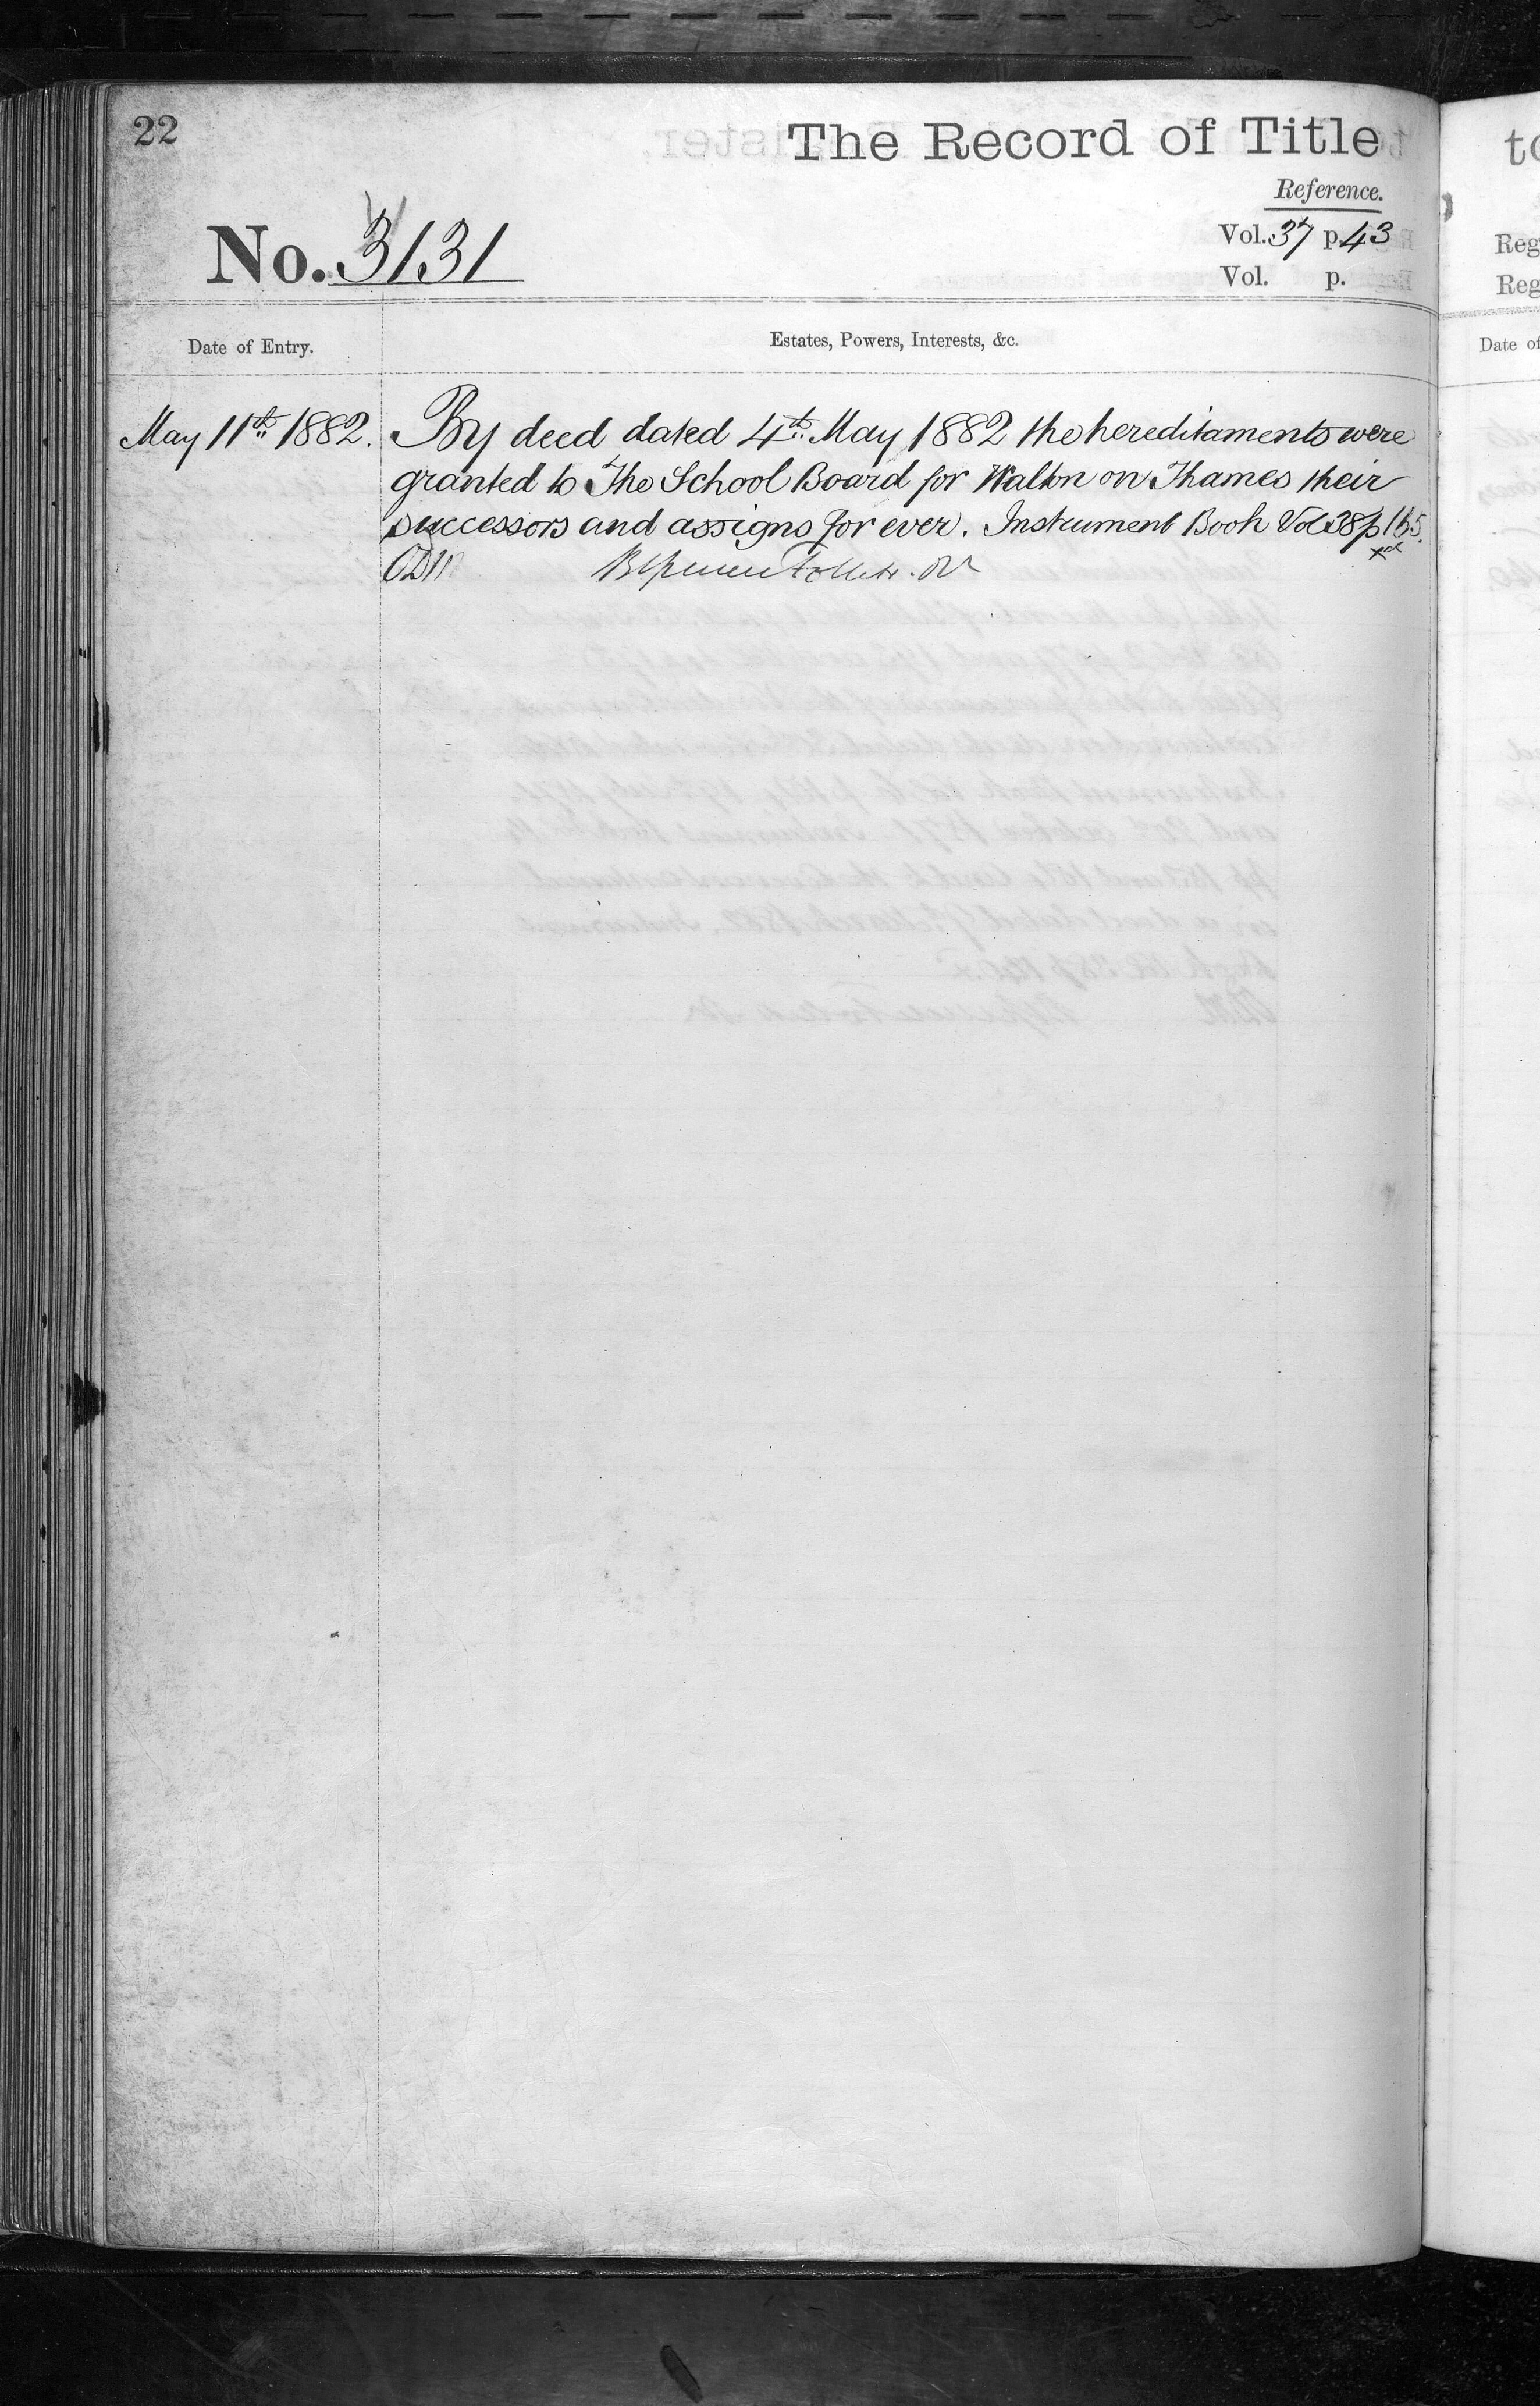 22
The Record of Title
Reference.
No. 3131
Vol. 37 p. 43
Vol. p.
Date of Entry.
Estates, Powers, Interests, &c.
May 11th 1882. By deed dated 4th May 1882 the hereditaments were
granted to The School Board for Walton on Thames their
successors and assigns for ever. Instrument Book Vol 38 p 165.
to
Reg
Reg
Date of